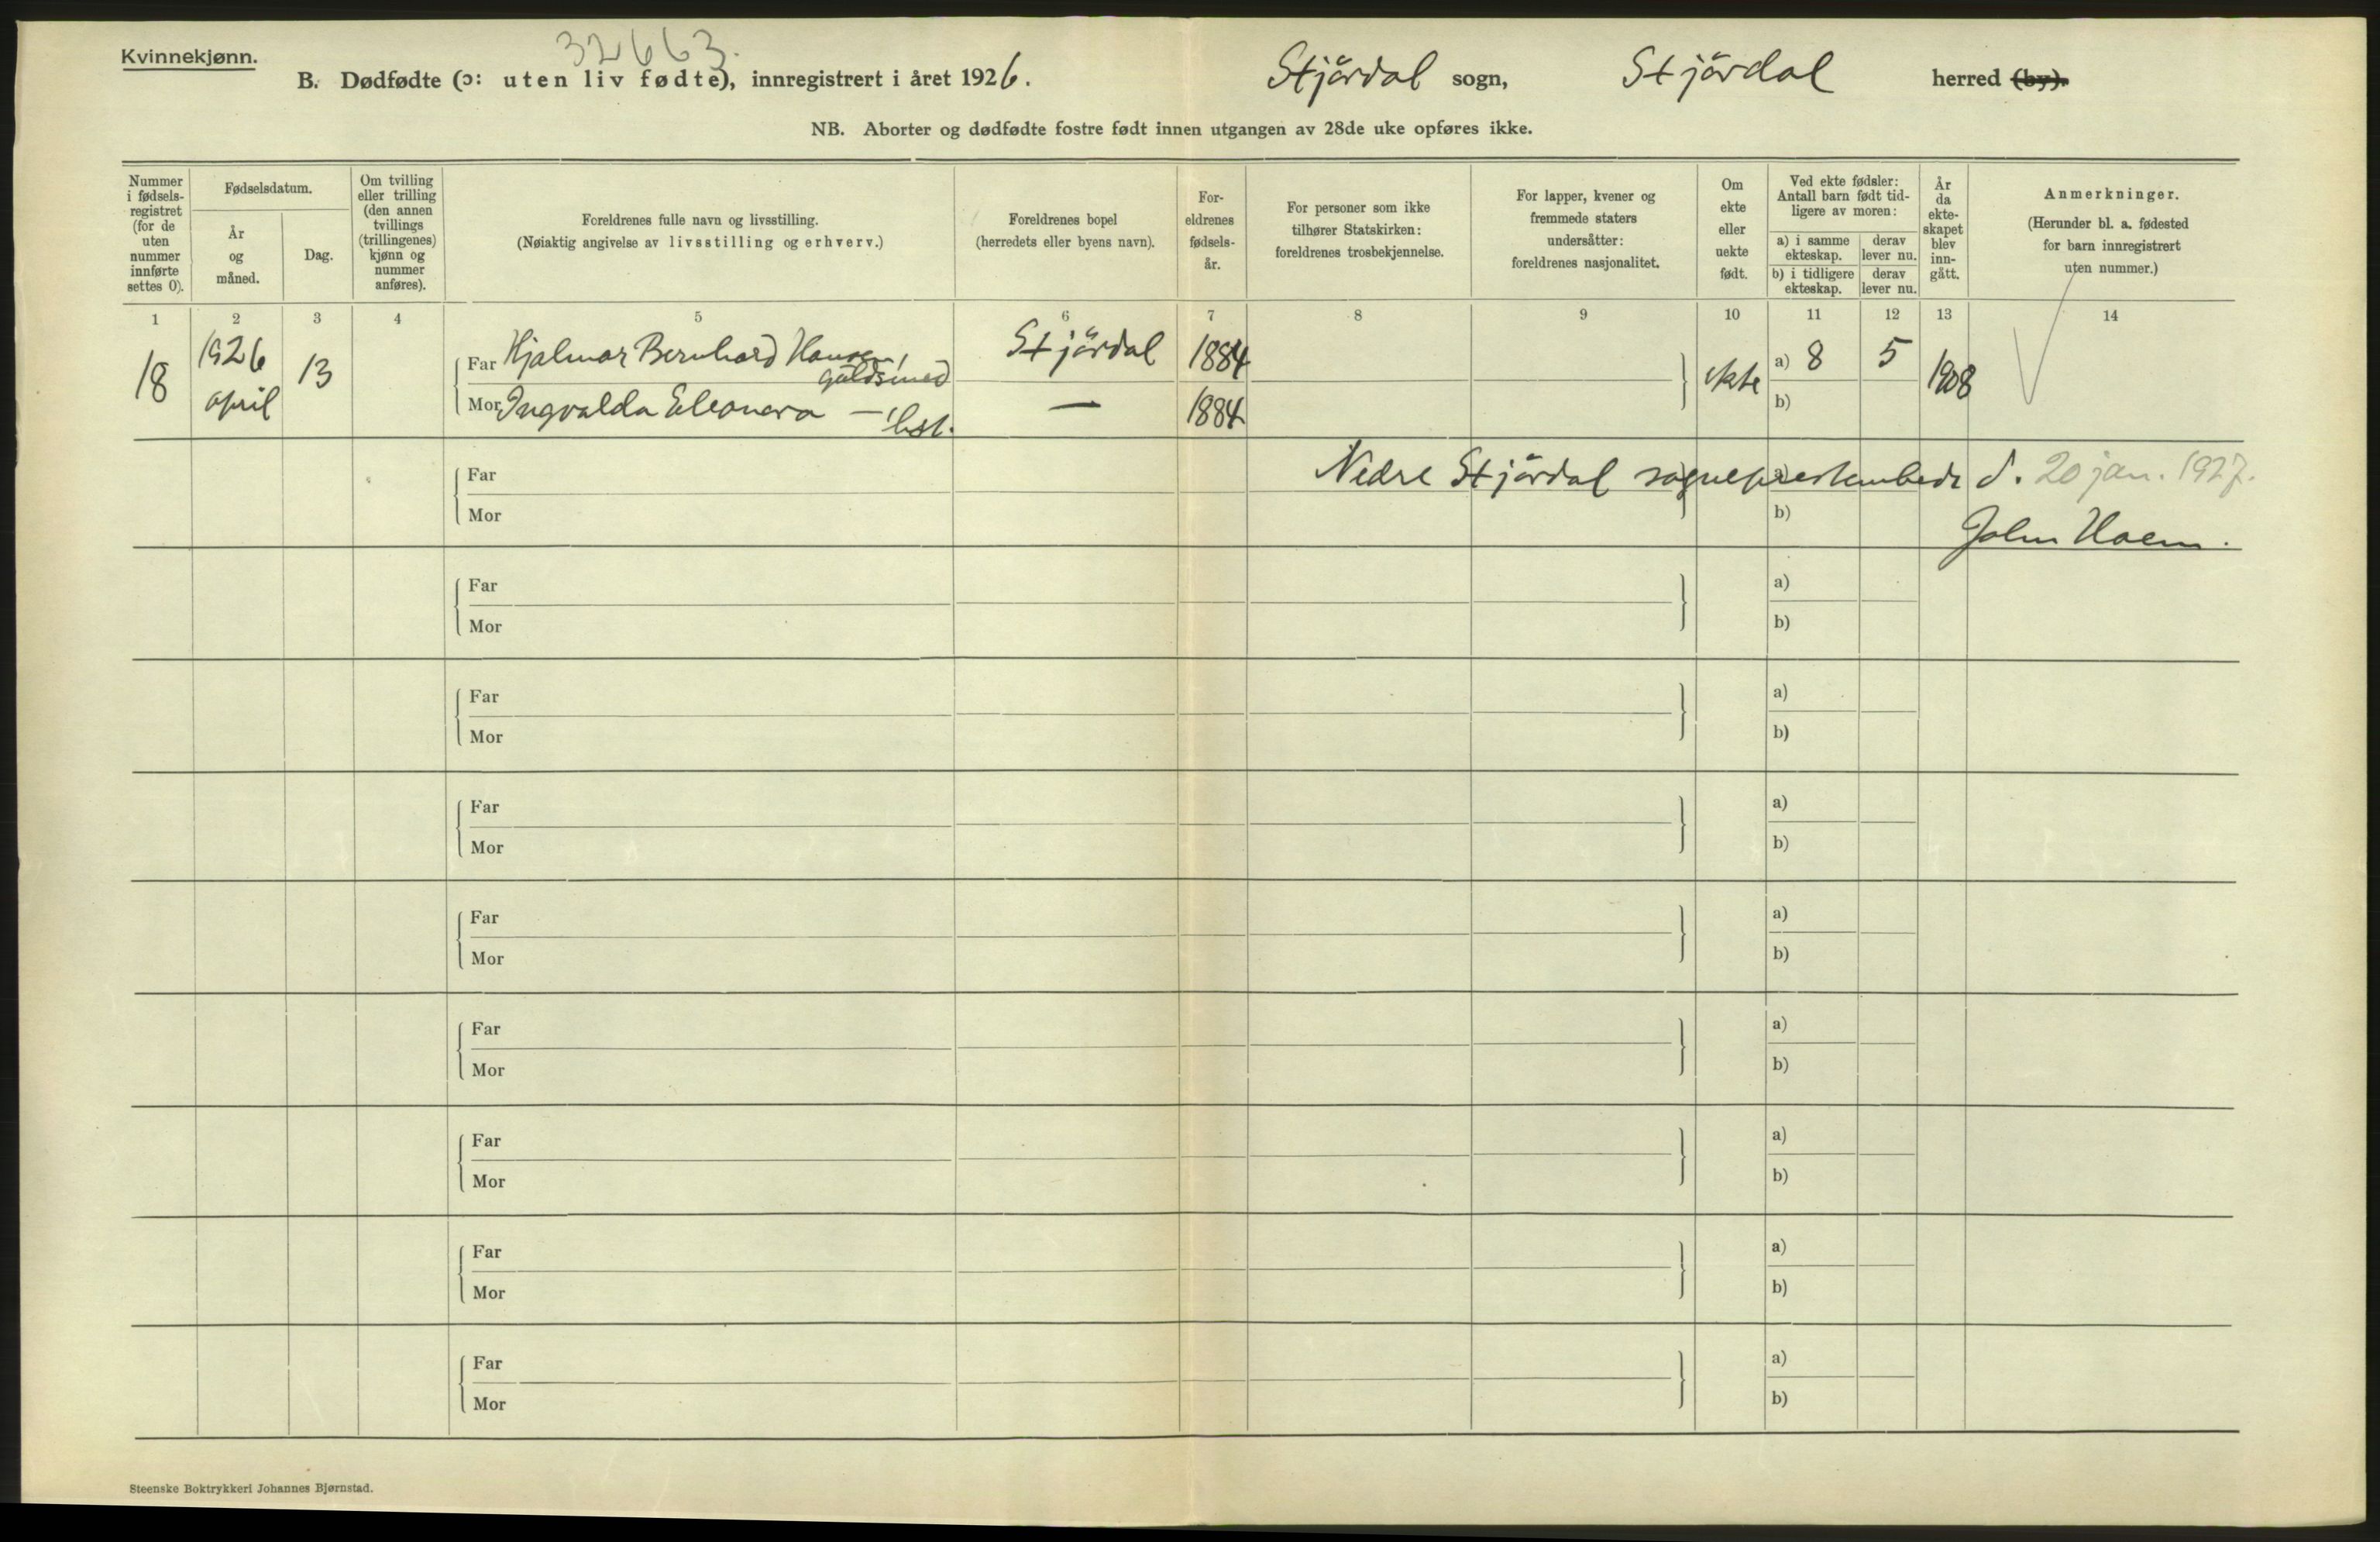 Kvinnekjønn.
32663.
B. Dødfødte (ɔ: uten liv fødte), innregistrert i året 1926. Stjördal sogn, Stjördal herred (by).
NB. Aborter og dødfødte fostre født innen utgangen av 28de uke opføres ikke.
Nummer
i fødsels-
registret
(for de
uten
nummer
innførte
settes 0).
Fødselsdatum.
År
og
måned.
Dag.
Om tvilling
eller trilling
(den annen
tvillings
(trillingenes)
kjønn og
nummer
anføres).
Foreldrenes fulle navn og livsstilling.
(Nøiaktig angivelse av livsstilling og erhverv.)
Foreldrenes bopel
(herredets eller byens navn).
For-
eldrenes
fødsels-
år.
For personer som ikke
tilhører Statskirken:
foreldrenes trosbekjennelse.
For lapper, kvener og
fremmede staters
undersåtter:
foreldrenes nasjonalitet.
Om
ekte
eller
uekte
født.
Ved ekte fødsler:
Antall barn født tid-
ligere av moren:
a) i samme
ekteskap.
derav
lever nu.
b) i tidligere
ekteskap.
derav
lever nu.
År
da
ekte-
skapet
blev
inn-
gått.
Anmerkninger.
(Herunder bl. a. fødested
for barn innregistrert
uten nummer.)
1 2 3 4 5 6 7 8 9 10 11 12 13 14
18 1926 april 13
Far Hjalmar Bernhard Hansen, Stjördal 1884
guldsmed
ekte a) 8 5 1908
Mor Ingvalda Eleonora — — 1884
b)
Far
Nedre Stjördal sogneprestembede d. 20 jan. 1927.
Mor
b)
John Haem.
Far
a)
Mor
b)
Far
a)
Mor
b)
Far
a)
Mor
b)
Far
a)
Mor
b)
Far
a)
Mor
b)
Far
a)
Mor
b)
Far
a)
Mor
b)
Far
a)
Mor
b)
Steenske Boktrykkeri Johannes Bjørnstad.